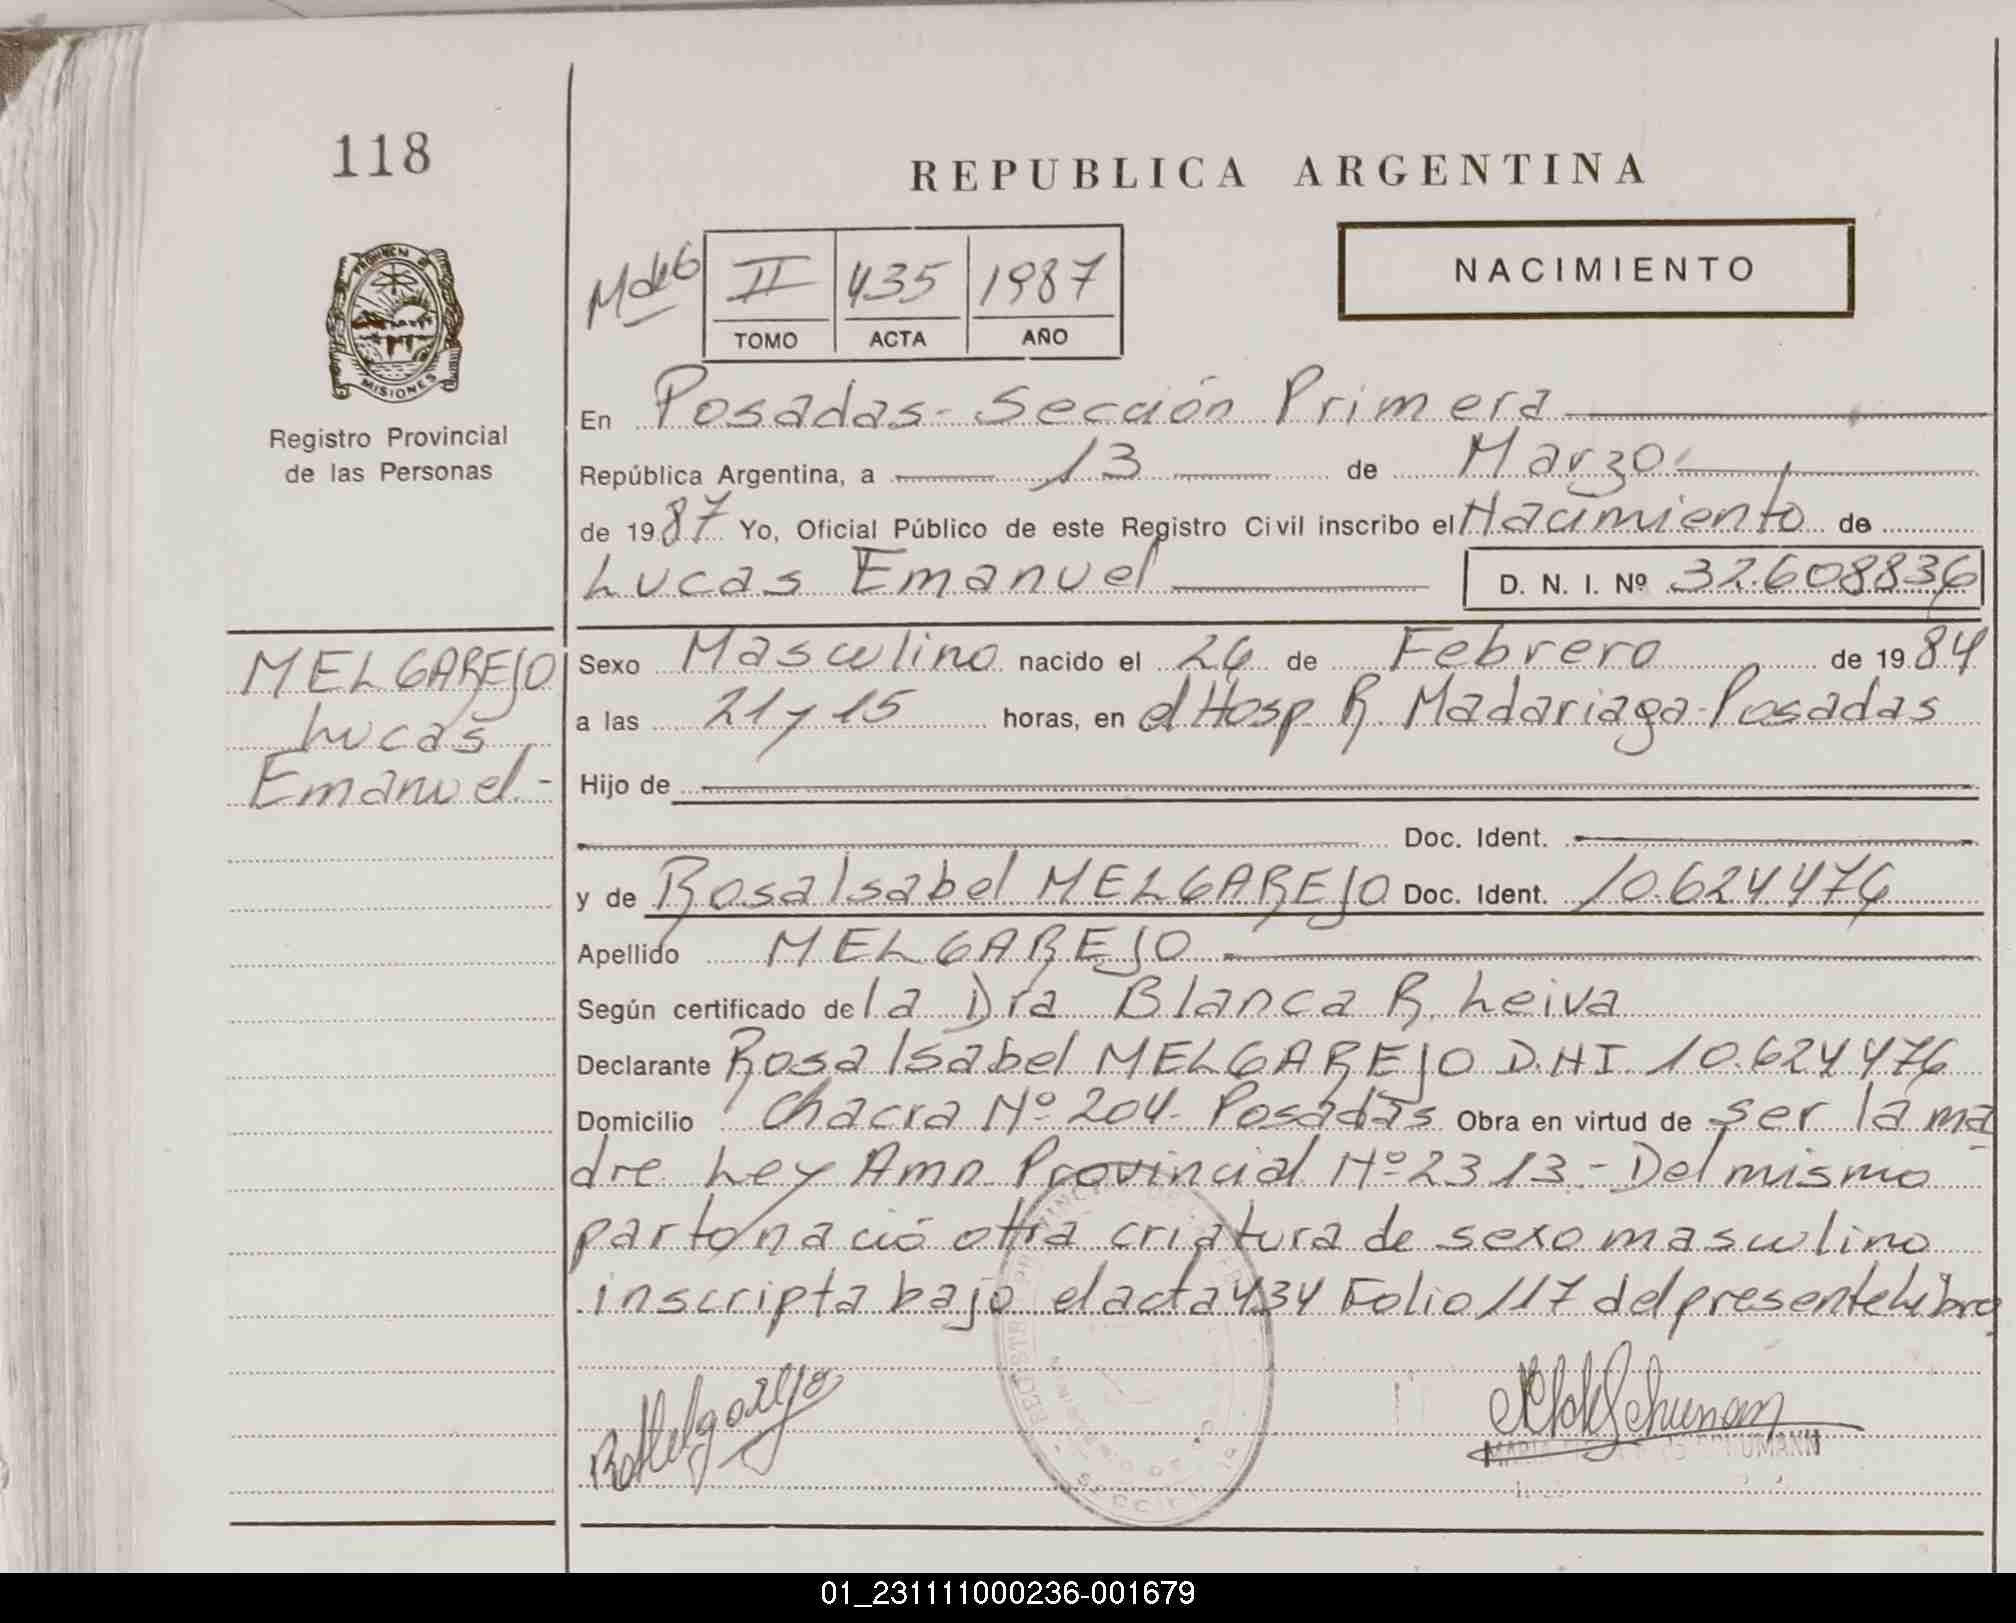 118
REPUBLICA ARGENTINA
NACIMIENTO
II 435 1987
TOMO ACTA AÑO
PROVINCIA DE
MISIONES
Registro Provincial
de las Personas
En Posadas - Sección Primera
República Argentina, a 13 de Marzo
de 1987 Yo, Oficial Público de este Registro Civil inscribo el Nacimiento de
Lucas Emanuel D. N. I. Nº 32.608836
MELGAREJO
Lucas
Emanuel.-
Sexo Masculino nacido el 26 de Febrero de 1984
a las 21 y 15 horas, en el Hosp R. Madariaga - Posadas
Hijo de
Doc. Ident.
y de Rosa Isabel MELGAREJO Doc. Ident. 10.624476
Apellido MELGAREJO
Según certificado de la Dra Blanca R. Leiva
Declarante Rosa Isabel MELGAREJO D.N.I. 10.624476
Domicilio Chacra Nº 204. Posadas Obra en virtud de ser la ma
dre Ley Amn Provincial Nº 2313.- Del mismo
parto nació otra criatura de sexo masculino
inscripta bajo el acta 434 Folio 117 del presente Libro
01_231111000236-001679